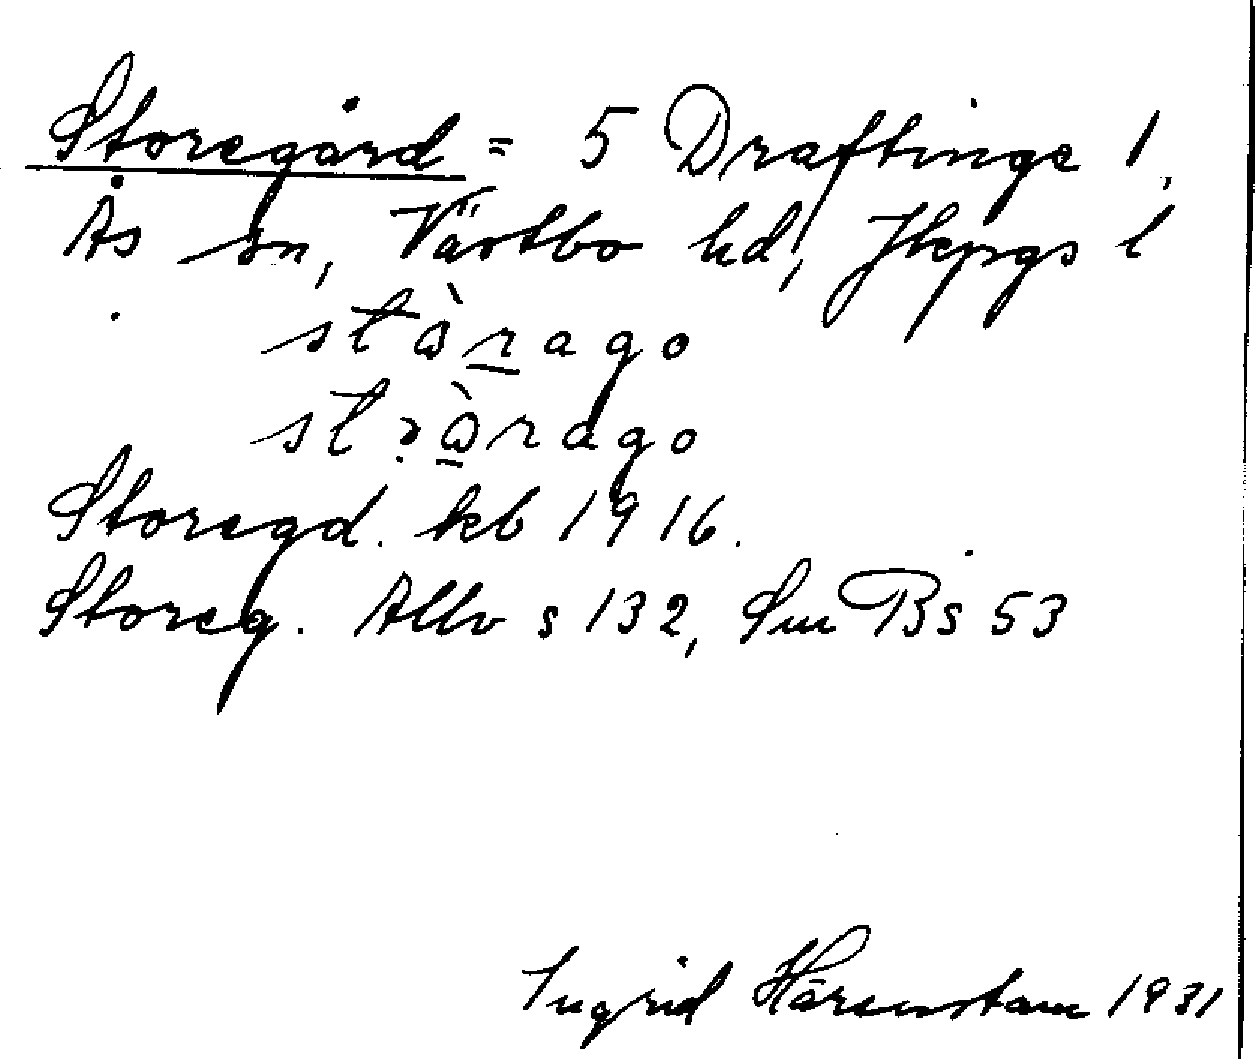 Storegård = 5 Draftinge 1,
Ås sn, Västbo hd, Jkpgs l
stàrago
Storegd. kb 1916.
Storeg. Allv s 132, Sm Bs 53
Ingrid Härenstam 1931